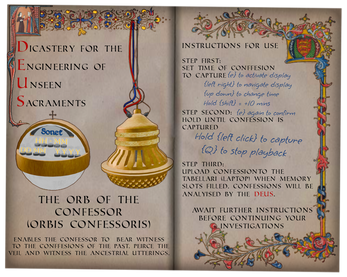 Dicastery for the
Engineering of
Unseen
Sacraments
THE ORB OF THE
CONFESSOR
(ORBIS CONFESSORIS)
ENABLES THE CONFESSOR TO BEAR WITNESS
TO THE CONFESSIONS OF THE PAST. PIERCE THE
VEIL AND WITNESS THE ANCESTRAL UTTERINGS.
INSTRUCTIONS FOR USE
STEP FIRST:
SET TIME OF CONFESSION
TO CAPTURE (e) to activate display
(left right) to navigate display
(up down) to change time
Hold (shift) = +10 mins
STEP SECOND: (e) again to confirm
HOLD UNTIL CONFESSION IS
CAPTURED
Hold (left click) to capture
(Q) to stop playback
STEP THIRD:
UPLOAD CONFESSION TO THE
TABELLARII (LAPTOP) WHEN MEMORY
SLOTS FILLED. CONFESSIONS WILL BE
ANALYSED BY THE DEUS.
AWAIT FURTHER INSTRUCTIONS
BEFORE CONTINUING YOUR
INVESTIGATIONS